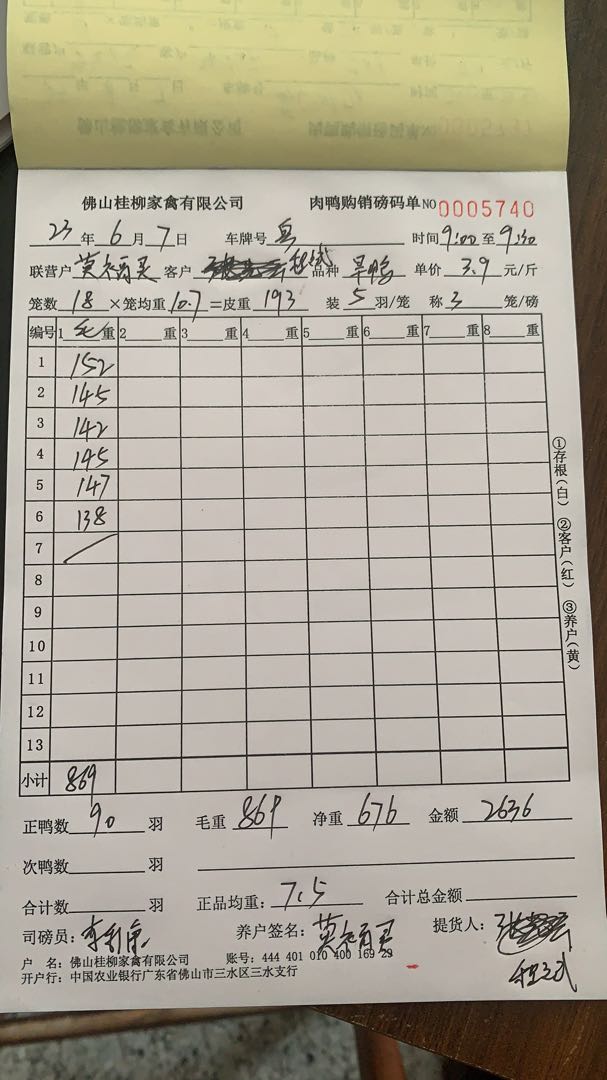 佛山桂柳家禽有限公司 肉鸭购销磅码单 NO 0005740
23 年 6 月 7 日 车牌号 时间 9:00 至 9:30
联营户 客户 品种 旱鸭 单价 3.9 元/斤
笼数 18 ×笼均重 10.7 =皮重 193 装 5 羽/笼 称 3 笼/磅
编号 1 毛 重 2 重 3 重 4 重 5 重 6 重 7 重 8 重
1 152
2 145
3 142
4 145
5 147
6 138
7
8
9
10
11
12
13
小计 869
①存根(白) ②客户(红) ③养户(黄)
正鸭数 90 羽 毛重 869 净重 676 金额 2636
次鸭数 羽
合计数 羽 正品均重: 7.5 合计总金额
司磅员: 养户签名: 提货人:
户 名: 佛山桂柳家禽有限公司 账号: 444 401 010 400 169 29
开户行: 中国农业银行广东省佛山市三水区三水支行